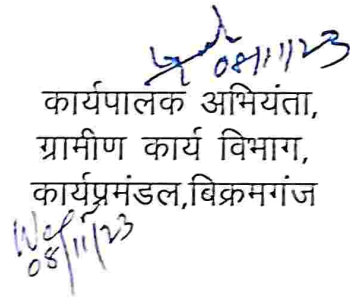 08/11/23
कार्यपालक अभियंता,
ग्रामीण कार्य विभाग,
कार्यप्रमंडल,बिक्रमगंज
08/11/23